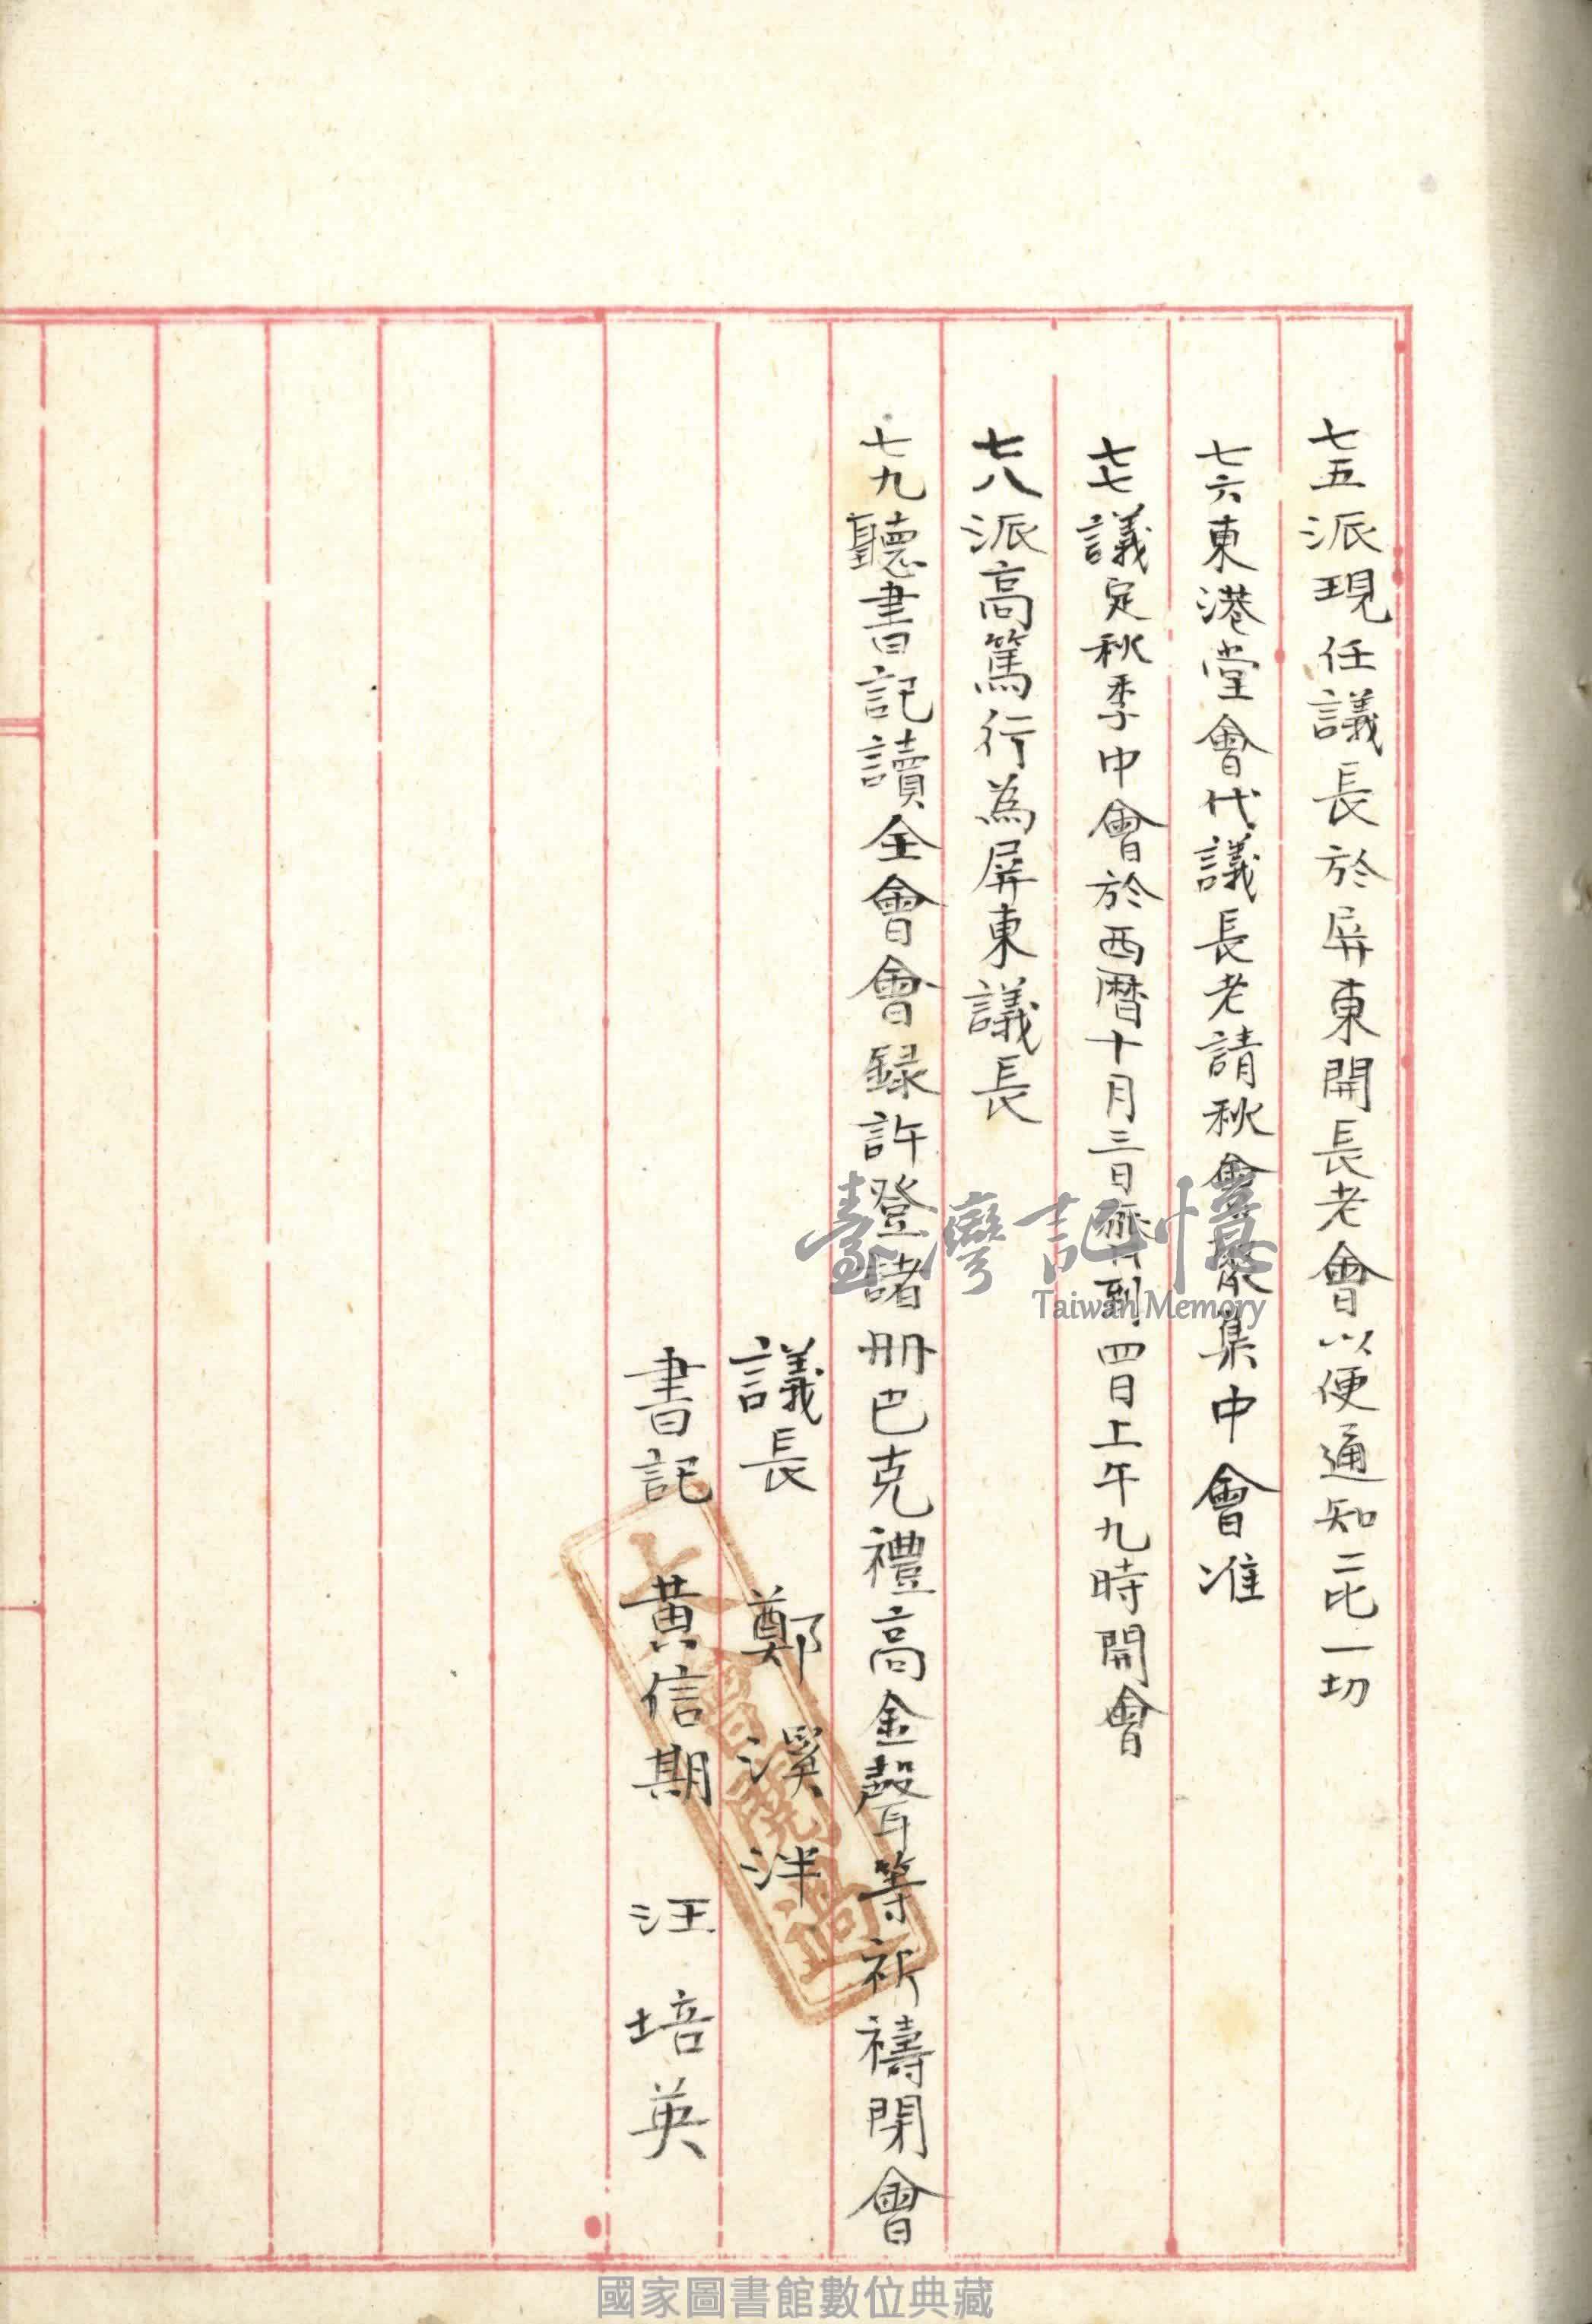 七五派現任議長於屏東開長老會以便通知二比一切
七六東港堂會代議長老請秋會聚集中會准
七七議定秋季中會於西曆十月三日齊到四日上午九時開會
七八派高篤行為屏東議長
七九聽書記讀全會會錄許登諸冊巴克禮高金聲等祈禱閉會
議長 鄭溪泮
書記 黃信期 汪培英
臺灣記憶
Taiwan Memory
國家圖書館數位典藏